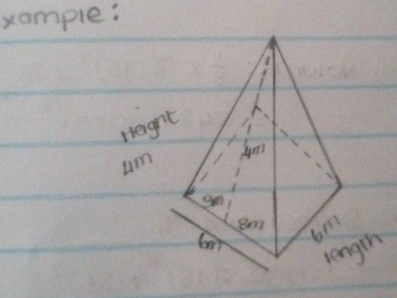 xample:
Height
4m
4m
9m
8m
6m
6m
length